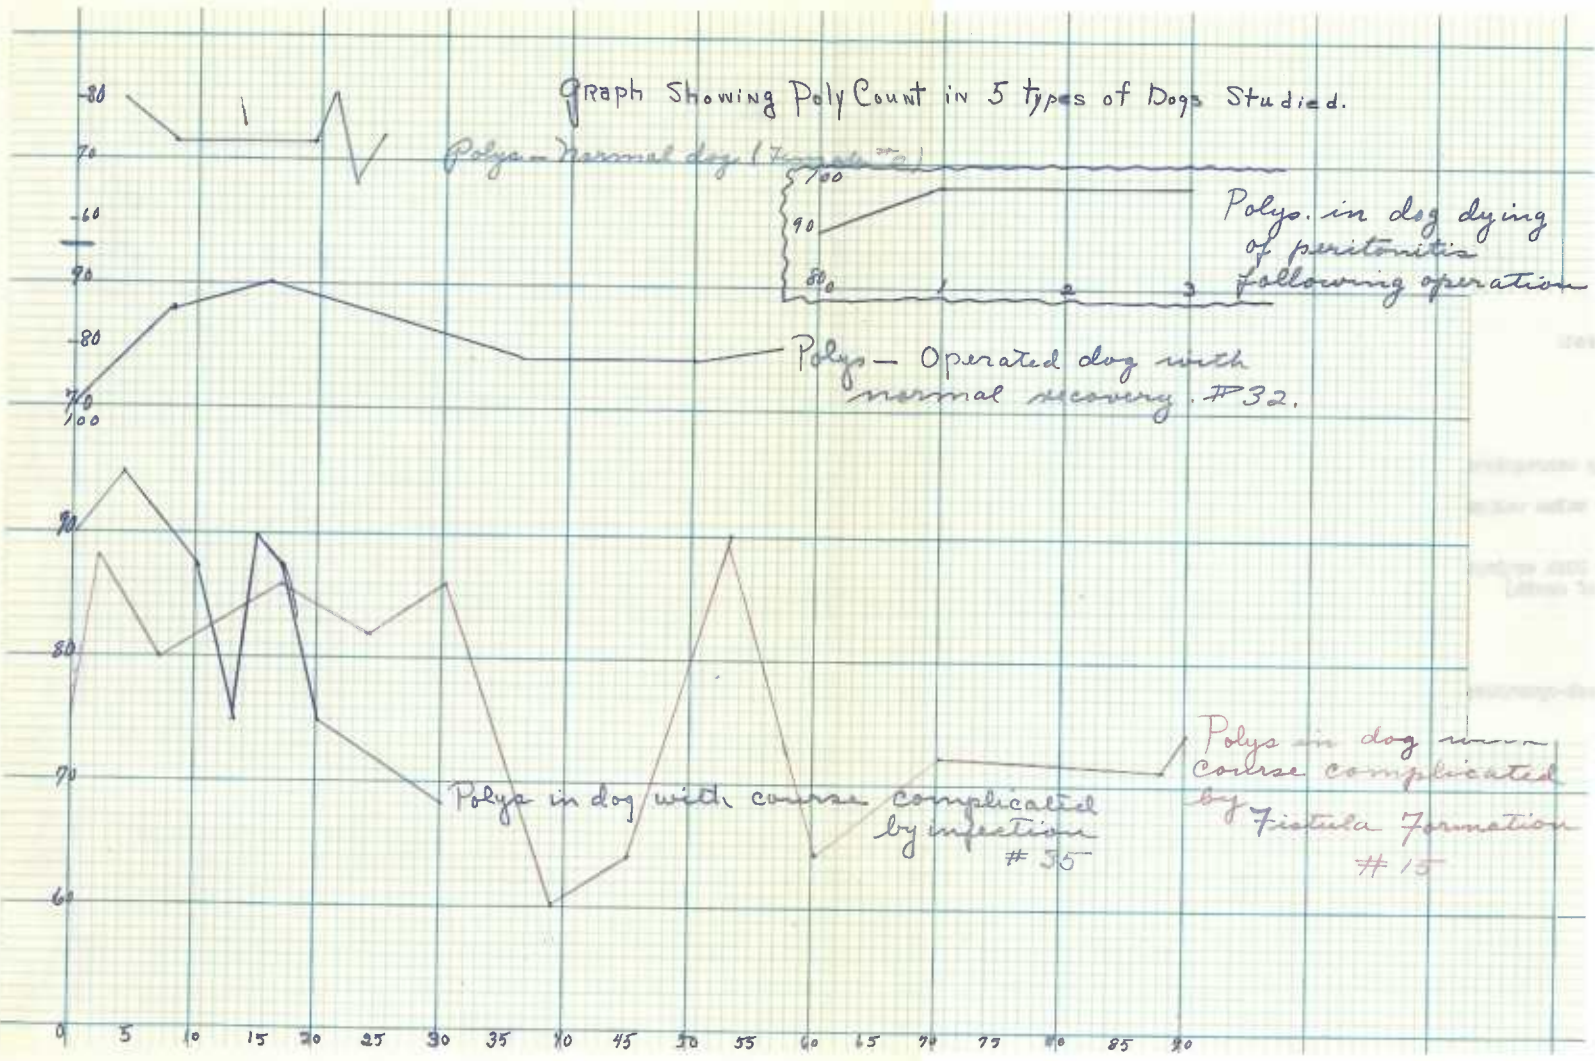 Graph Showing Poly Count in 5 types of Dogs Studied.
80
70
60
Polys - Normal dog (Female #2)
100
90
80
1 2 3
Polys. in dog dying
of peritonitis
following operation
90
80
70
Polys - Operated dog with
normal recovery. #32.
100
90
80
70
60
Polys in dog with course complicated
by infection
# 35
Polys in dog
course complicated
by
Fistula Formation
# 15
0 5 10 15 20 25 30 35 40 45 50 55 60 65 70 75 80 85 90